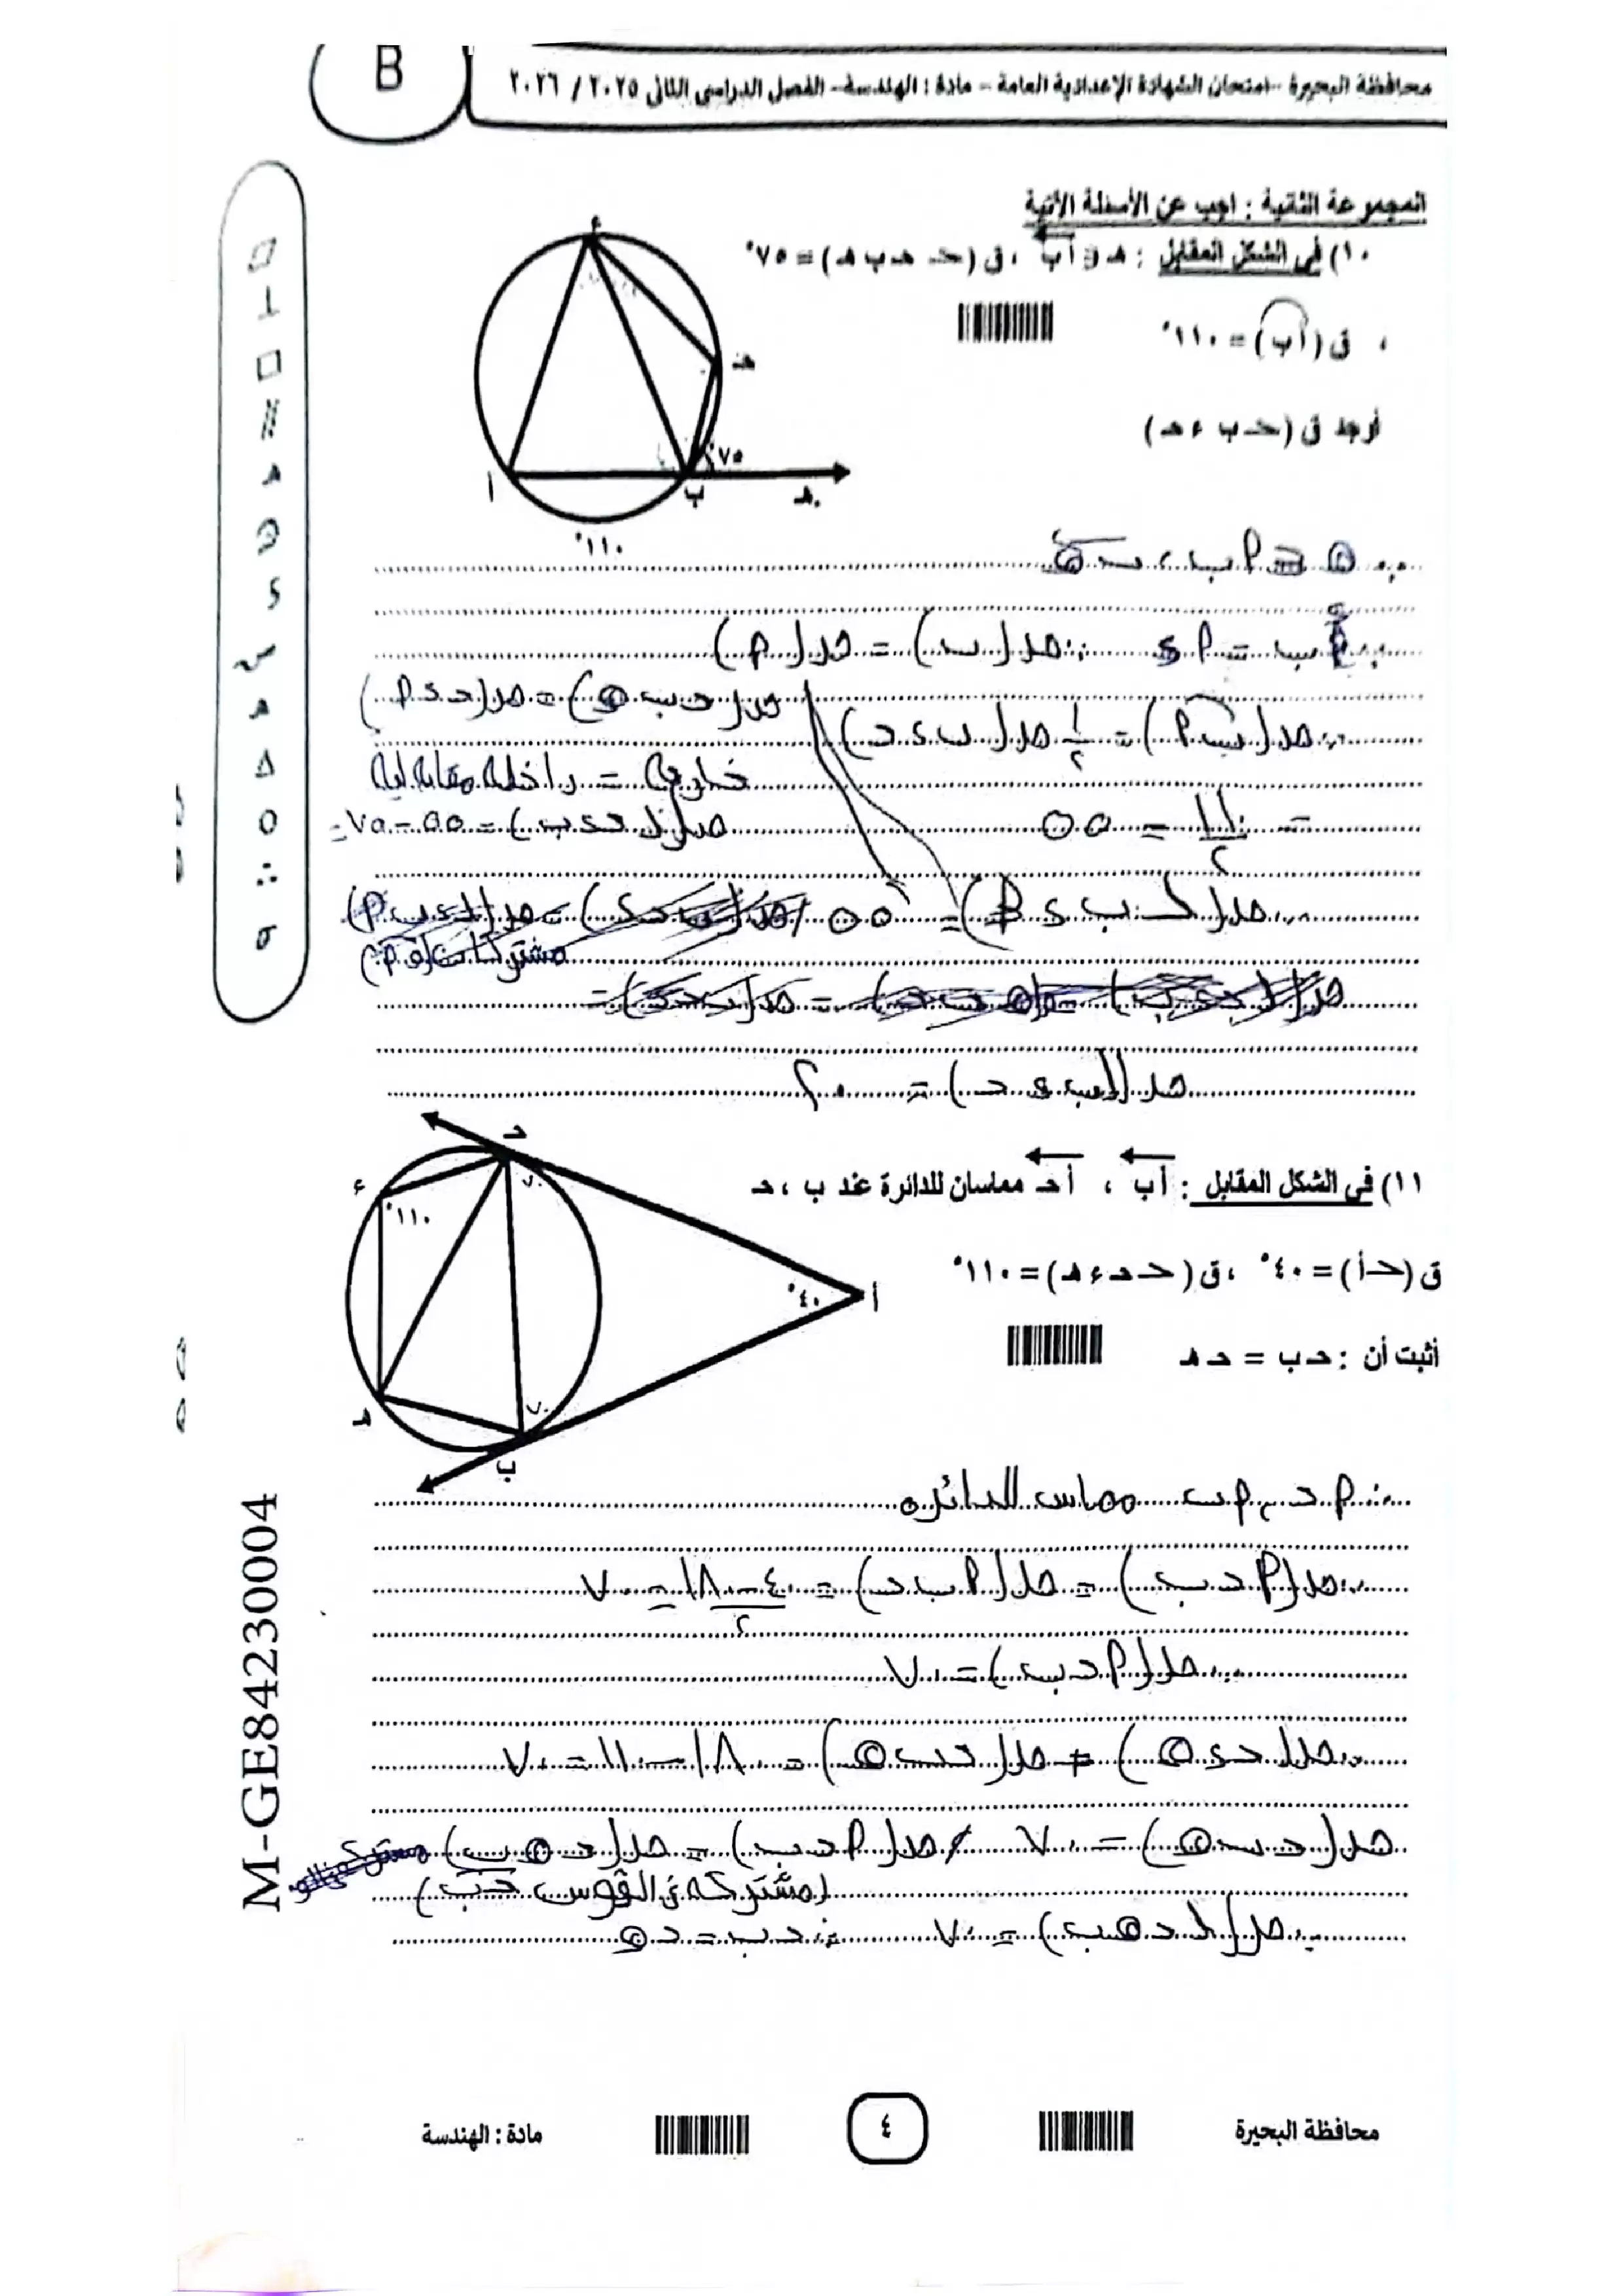 B
محافظة البحيرة - امتحان الشهادة الإعدادية العامة - مادة : الهندسة - الفصل الدراسي الثاني ٢٠٢٥ / ٢٠٢٦
المجموعة الثانية : اجب عن الأسئلة الأتية
١٠) في الشكل المقابل : هـ ∋ أب ، ق (> حـ ب هـ) = ٧٥°
، ق (أب) = ١١٠°
أوجد ق (> ب ء حـ)
ء
حـ
٧٥°
أ
ب
هـ
١١٠°
∵ هـ ∋ أ ب
أ ب = أ ء ∴ ق (ب) = ق (أ)
ق (> حـ ب هـ) = ق (حـ ء أ)
∴ ق (ب أ) = ١/٢ ق (ب ء حـ)
خارجة = داخلة مقابلة لها
= ١١٠/٢ = ٥٥
ق (> حـ ء ب) = ٧٥ - ٥٥ =
∴ ق (> ب ء أ) = ٥٥°
ق (> ب ء حـ) = ٢٠
١١) في الشكل المقابل : أب ، أحـ مماسان للدائرة عند ب ، حـ
ق (> أ) = ٤٠° ، ق (> حـ ء هـ) = ١١٠°
أثبت أن : حـ ب = حـ هـ
حـ
ء
١١٠°
٧٠
٤٠°
أ
هـ
٧٠
ب
∵ أ حـ ، أ ب مماس للدائره
∴ ق (أ حـ ب) = ق (أ ب حـ) = ١٨٠ - ٤٠ / ٢ = ٧٠
∴ ق (أ حـ ب) = ٧٠
∵ ق (حـ ء هـ) + ق (حـ ب هـ) = ١٨٠ - ١١٠ = ٧٠
ق (حـ ب هـ) = ٧٠ / ق (أ حـ ب) = ق (حـ هـ ب)
(مشتركة في القوس حـ ب)
∴ ق (> حـ هـ ب) = ٧٠ ∴ حـ ب = حـ هـ
M-GE84230004
محافظة البحيرة
٤
مادة : الهندسة